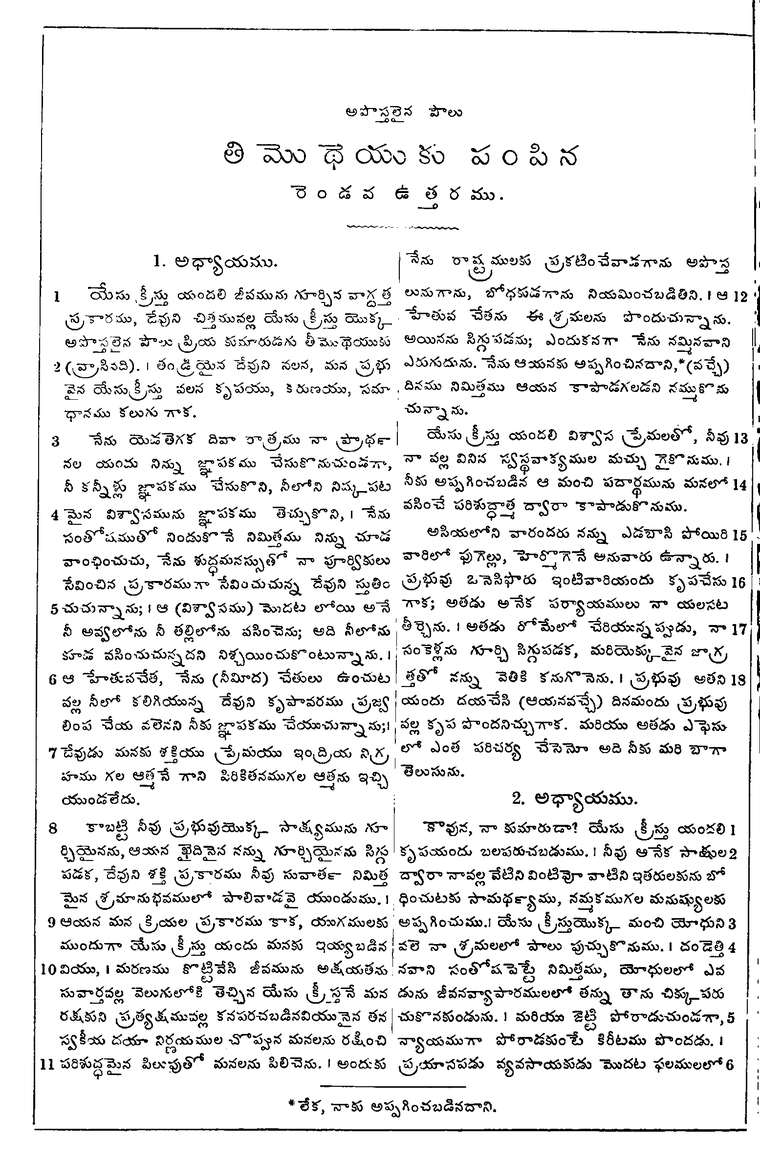 అపొస్తలైన పౌలు
తిమొథెయుకు పంపిన
రెండవ ఉత్తరము.
1. అధ్యాయము.
1 యేసు క్రీస్తు యందలి జీవమును గూర్చిన వాగ్దత్త
ప్రకారము, దేవుని చిత్తమువల్ల యేసు క్రీస్తు యొక్క
అపొస్తలైన పౌలు ప్రియ కుమారుడగు తీమొథెయుకు
2 (వ్రాసినది). । తండ్రియైన దేవుని వలన, మన ప్రభు
వైన యేసుక్రీస్తు వలన కృపయు, కరుణయు, సమా
ధానము కలుగు గాక.
3 నేను యెడతెగక దివా రాత్రము నా ప్రార్థణ
నల యందు నిన్ను జ్ఞాపకము చేసుకొనుచుండగా,
నీ కన్నీళ్లు జ్ఞాపకము చేసుకొని, నీలోని నిష్కపట
4 మైన విశ్వాసమును జ్ఞాపకము తెచ్చుకొని, । నేను
సంతోషముతో నిండుకొనే నిమిత్తము నిన్ను చూడ
వాంఛించుచు, నేను శుద్ధమనస్సుతో నా పూర్వికులు
సేవించిన ప్రకారముగా సేవించుచున్న దేవుని స్తుతిం
5 చుచున్నాను; । ఆ (విశ్వాసము) మొదట లోయి అనే
నీ అవ్వలోను నీ తల్లిలోను వసించెను; అది నీలోను
కూడ వసించుచున్నదని నిశ్చయించుకొంటున్నాను. ।
6 ఆ హేతువచేత, నేను (నీమీద) చేతులు ఉంచుట
వల్ల నీలో కలిగియున్న దేవుని కృపావరము ప్రజ్వ
లింప చేయ వలెనని నీకు జ్ఞాపకము చేయుచున్నాను;।
7 దేవుడు మనకు శక్తియు ప్రేమయు ఇంద్రియ నిగ్ర
హము గల ఆత్మనే గాని పిరికితనముగల ఆత్మను ఇచ్చి
యుండలేదు.
8 కాబట్టి నీవు ప్రభువుయొక్క సాక్ష్యమును గూ
ర్చియైనను, ఆయన ఖైదియైన నన్ను గూర్చియైనను సిగ్గు
పడక, దేవుని శక్తి ప్రకారము నీవు సువార్త నిమిత్త
మైన శ్రమానుభవములో పాలివాడవై యుండుము. ।
9 ఆయన మన క్రియల ప్రకారము కాక, యుగములకు
ముందుగా యేసు క్రీస్తు యందు మనకు ఇయ్యబడిన
10 వియు, । మరణము కొట్టివేసి జీవమును అక్షయతను
సువార్తవల్ల వెలుగులోకి తెచ్చిన యేసు క్రీస్తనే మన
రక్షకుని ప్రత్యక్షమువల్ల కనపరచబడినవియునైన తన
స్వకీయ దయా నిర్ణయముల చొప్పున మనలను రక్షించి
11 పరిశుద్ధమైన పిలుపుతో మనలను పిలిచెను. । అందుకు
నేను రాష్ట్రములకు ప్రకటించేవాడగాను అపొస్త
లునుగాను, బోధకుడగాను నియమించబడితిని. । ఆ 12
హేతువ చేతను ఈ శ్రమలను పొందుచున్నాను.
అయినను సిగ్గుపడను; ఎందుకనగా నేను నమ్మినవాని
ఎరుగుదును. నేను ఆయనకు అప్పగించినదాని,*(వచ్చే)
దినము నిమిత్తము ఆయన కాపాడగలడని నమ్ముకొను
చున్నాను.
యేసు క్రీస్తు యందలి విశ్వాస ప్రేమలతో, నీవు 13
నా వల్ల వినిన స్వస్థవాక్యముల మచ్చు గైకొనుము. ।
నీకు అప్పగించబడిన ఆ మంచి పదార్థమును మనలో 14
వసించే పరిశుద్ధాత్మ ద్వారా కాపాడుకొనుము.
అసియలోని వారందరు నన్ను ఎడబాసి పోయిరి 15
వారిలో ఫుగెల్లు, హెర్మొగెనే అనువారు ఉన్నారు. ।
ప్రభువు ఒనెసిఫొరు ఇంటివారియందు కృపచేసు 16
గాక; అతడు అనేక పర్యాయములు నా యలసట
తీర్చెను. । అతడు రోమేలో చేరియున్నప్పుడు, నా 17
సంకెళ్లను గూర్చి సిగ్గుపడక, మరియెక్కువైన జాగ్ర
త్తతో నన్ను వెతికి కనుగొనెను. । ప్రభువు అతని 18
యందు దయచేసి (ఆయనవచ్చే) దినమందు ప్రభువు
వల్ల కృప పొందనిచ్చుగాక. మరియు అతడు ఎఫెసు
లో ఎంత పరిచర్య చేసెనో అది నీకు మరి బాగా
తెలుసును.
2. అధ్యాయము.
కావున, నా కుమారుడా? యేసు క్రీస్తు యందలి 1
కృపయందు బలపరుచబడుము. । నీవు అనేక సాక్షుల 2
ద్వారా నావల్ల వేటిని వింటివో వాటిని ఇతరులకును బో
ధించుటకు సామర్థ్యము, నమ్మకముగల మనుష్యులకు
అప్పగించుము.। యేసు క్రీస్తుయొక్క మంచి యోధుని 3
వలె నా శ్రమలలో పాలు పుచ్చుకొనుము. । దండెత్తి 4
నవాని సంతోషపెట్టే నిమిత్తము, యోధులలో ఎవ
డును జీవనవ్యాపారములలో తన్ను తాను చిక్కుపరు
చుకొనకుండును. । మరియు జెట్టి పోరాడుచుండగా, 5
న్యాయముగా పోరాడకుంటే కిరీటము పొందడు. ।
ప్రయాసపడు వ్యవసాయకుడు మొదట ఫలములలో 6
* లేక, నాకు అప్పగించబడినదాని.